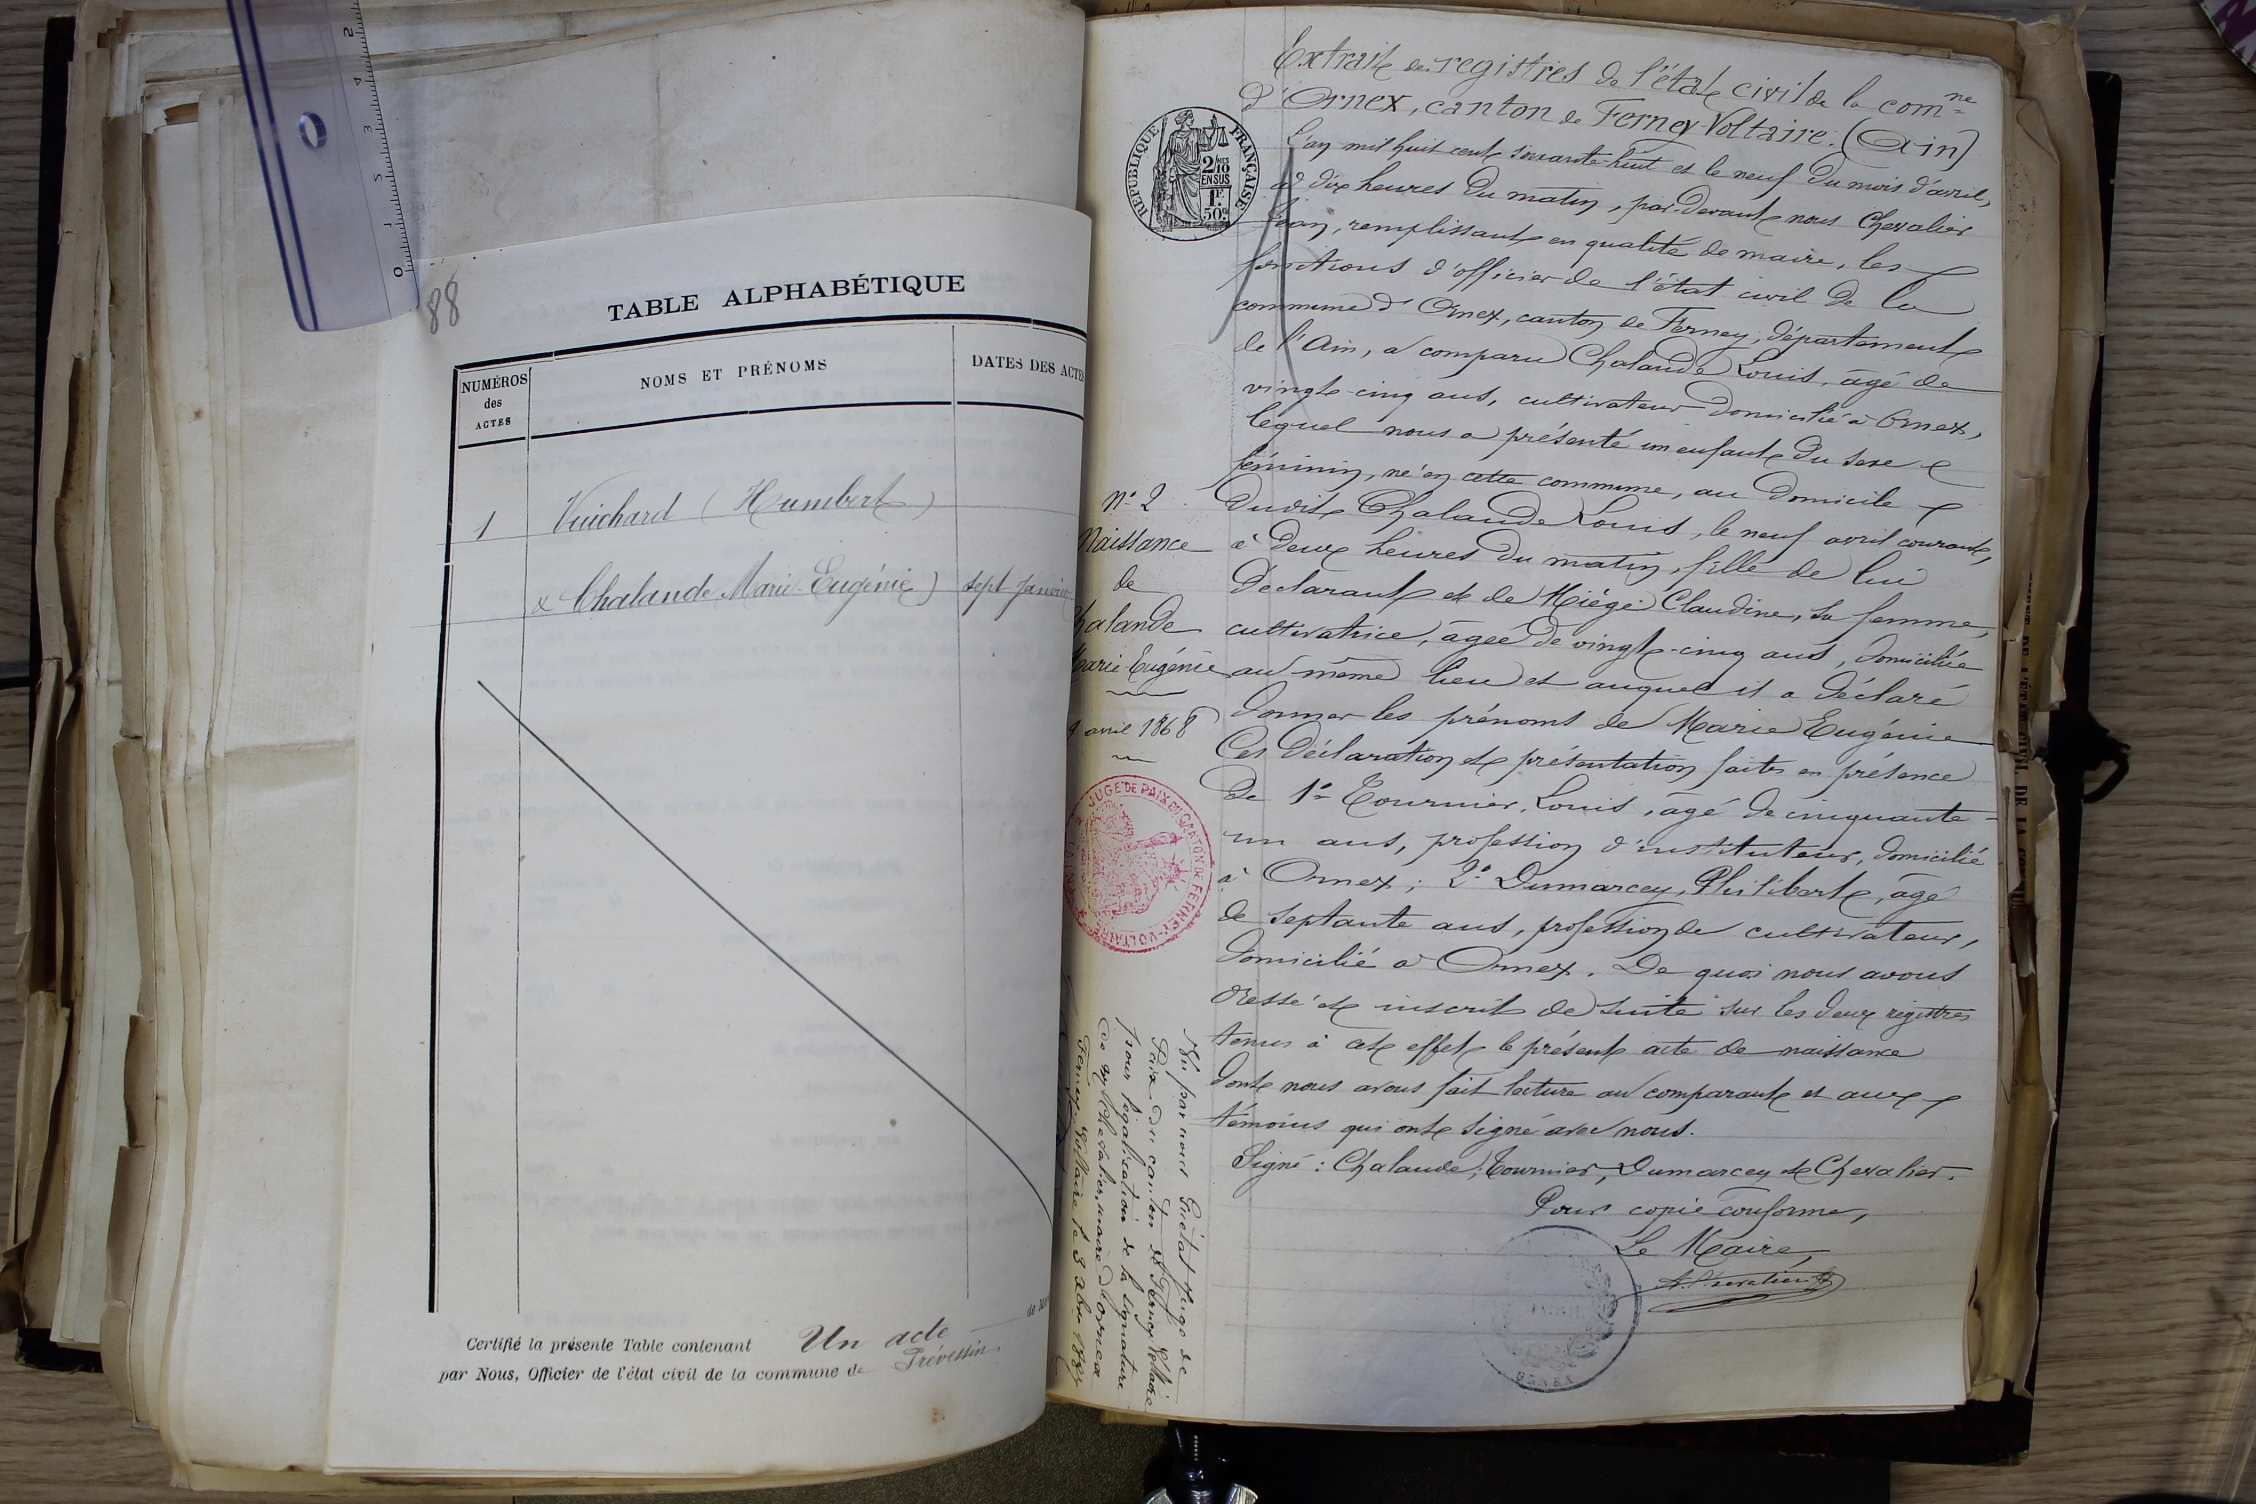 88
TABLE ALPHABÉTIQUE
NUMÉROS des ACTES
NOMS ET PRÉNOMS
DATES DES ACTES
1 Vuichard (Humbert)
& Chalande Marie-Eugénie) sept Janvier
Certifié la présente Table contenant Un acte
par Nous, Officier de l'état civil de la commune de Prévessin.
RÉPUBLIQUE FRANÇAISE
2/10 EN SUS
1F. 50c
Extrait des registres de l'état civil de la comne
d'Ornex, canton de Ferney-Voltaire. (Ain)
L'an mil huit cent soixante-huit et le neuf du mois d'avril,
à dix heures du matin, par-devant nous Chevalier
Jean, remplissant en qualité de maire, les
fonctions d'officier de l'état civil de la
commune d'Ornex, canton de Ferney, département
de l'Ain, a comparu Chalande Louis, âgé de
vingt-cinq ans, cultivateur domicilié à Ornex,
lequel nous a présenté un enfant du sexe
féminin, né en cette commune, au domicile
dudit Chalande Louis, le neuf avril courant,
à deux heures du matin, fille de lui
déclarant et de Miège Claudine, sa femme,
cultivatrice, âgée de vingt-cinq ans, domiciliée
au même lieu et auquel il a déclaré
donner les prénoms de Marie Eugénie
Ces déclaration et présentation faites en présence
de 1° Tournier, Louis, âgé de cinquante-
un ans, profession d'instituteur, domicilié
à Ornex; 2° Dumarcey, Philibert, âgé
de septante ans, profession de cultivateur,
domicilié à Ornex. De quoi nous avons
dressé et inscrit de suite sur les deux registres
tenus à cet effet le présent acte de naissance
dont nous avons fait lecture au comparant et aux
témoins qui ont signé avec nous.
Signé: Chalande, Tournier, Dumarcey et Chevalier.
Pour copie conforme,
Le Maire,
N° 2
Naissance
de
Chalande
Marie Eugénie
9 avril 1868
JUGE DE PAIX DU CANTON DE FERNEY-VOLTAIRE
Vu par nous Juge de
Paix du canton de Ferney Voltaire
pour légalisation de la signature
de Mr Chevalier, maire d'Ornex
Ferney-Voltaire le 3